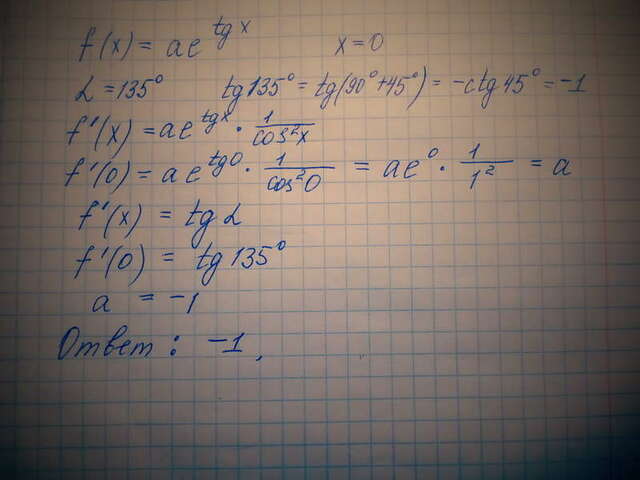 f(x) = ae^{tg x} x = 0
α = 135° tg 135° = tg(90° + 45°) = -ctg 45° = -1
f'(x) = ae^{tg x} · \frac{1}{cos²x}
f'(0) = ae^{tg 0} · \frac{1}{cos²0} = ae⁰ · \frac{1}{1²} = a
f'(x) = tg α
f'(0) = tg 135°
a = -1
Ответ: -1,